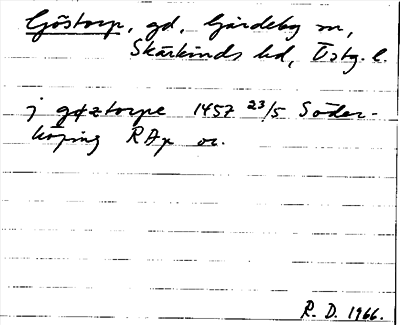 Göstorp, gd, Gärdeby sn,
Skärkinds hd, Östg. l.
j gøztorpe 1457 23/5 Söder-
köping RAp or.
R. D. 1966.